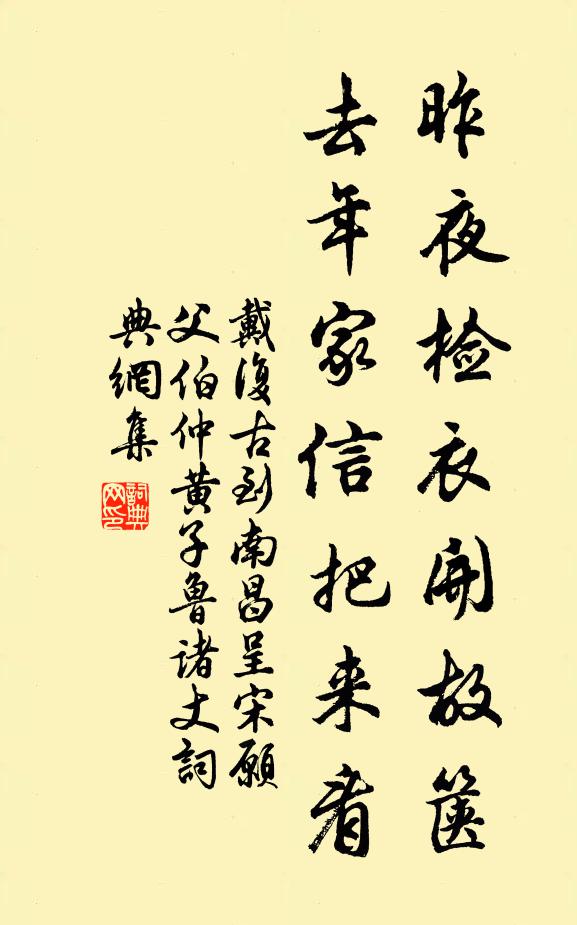 昨夜检衣开故箧
去年家信把来看
戴復古到南昌呈宋願
父伯仲黄子魯諸丈詞
典網集
詞典網印